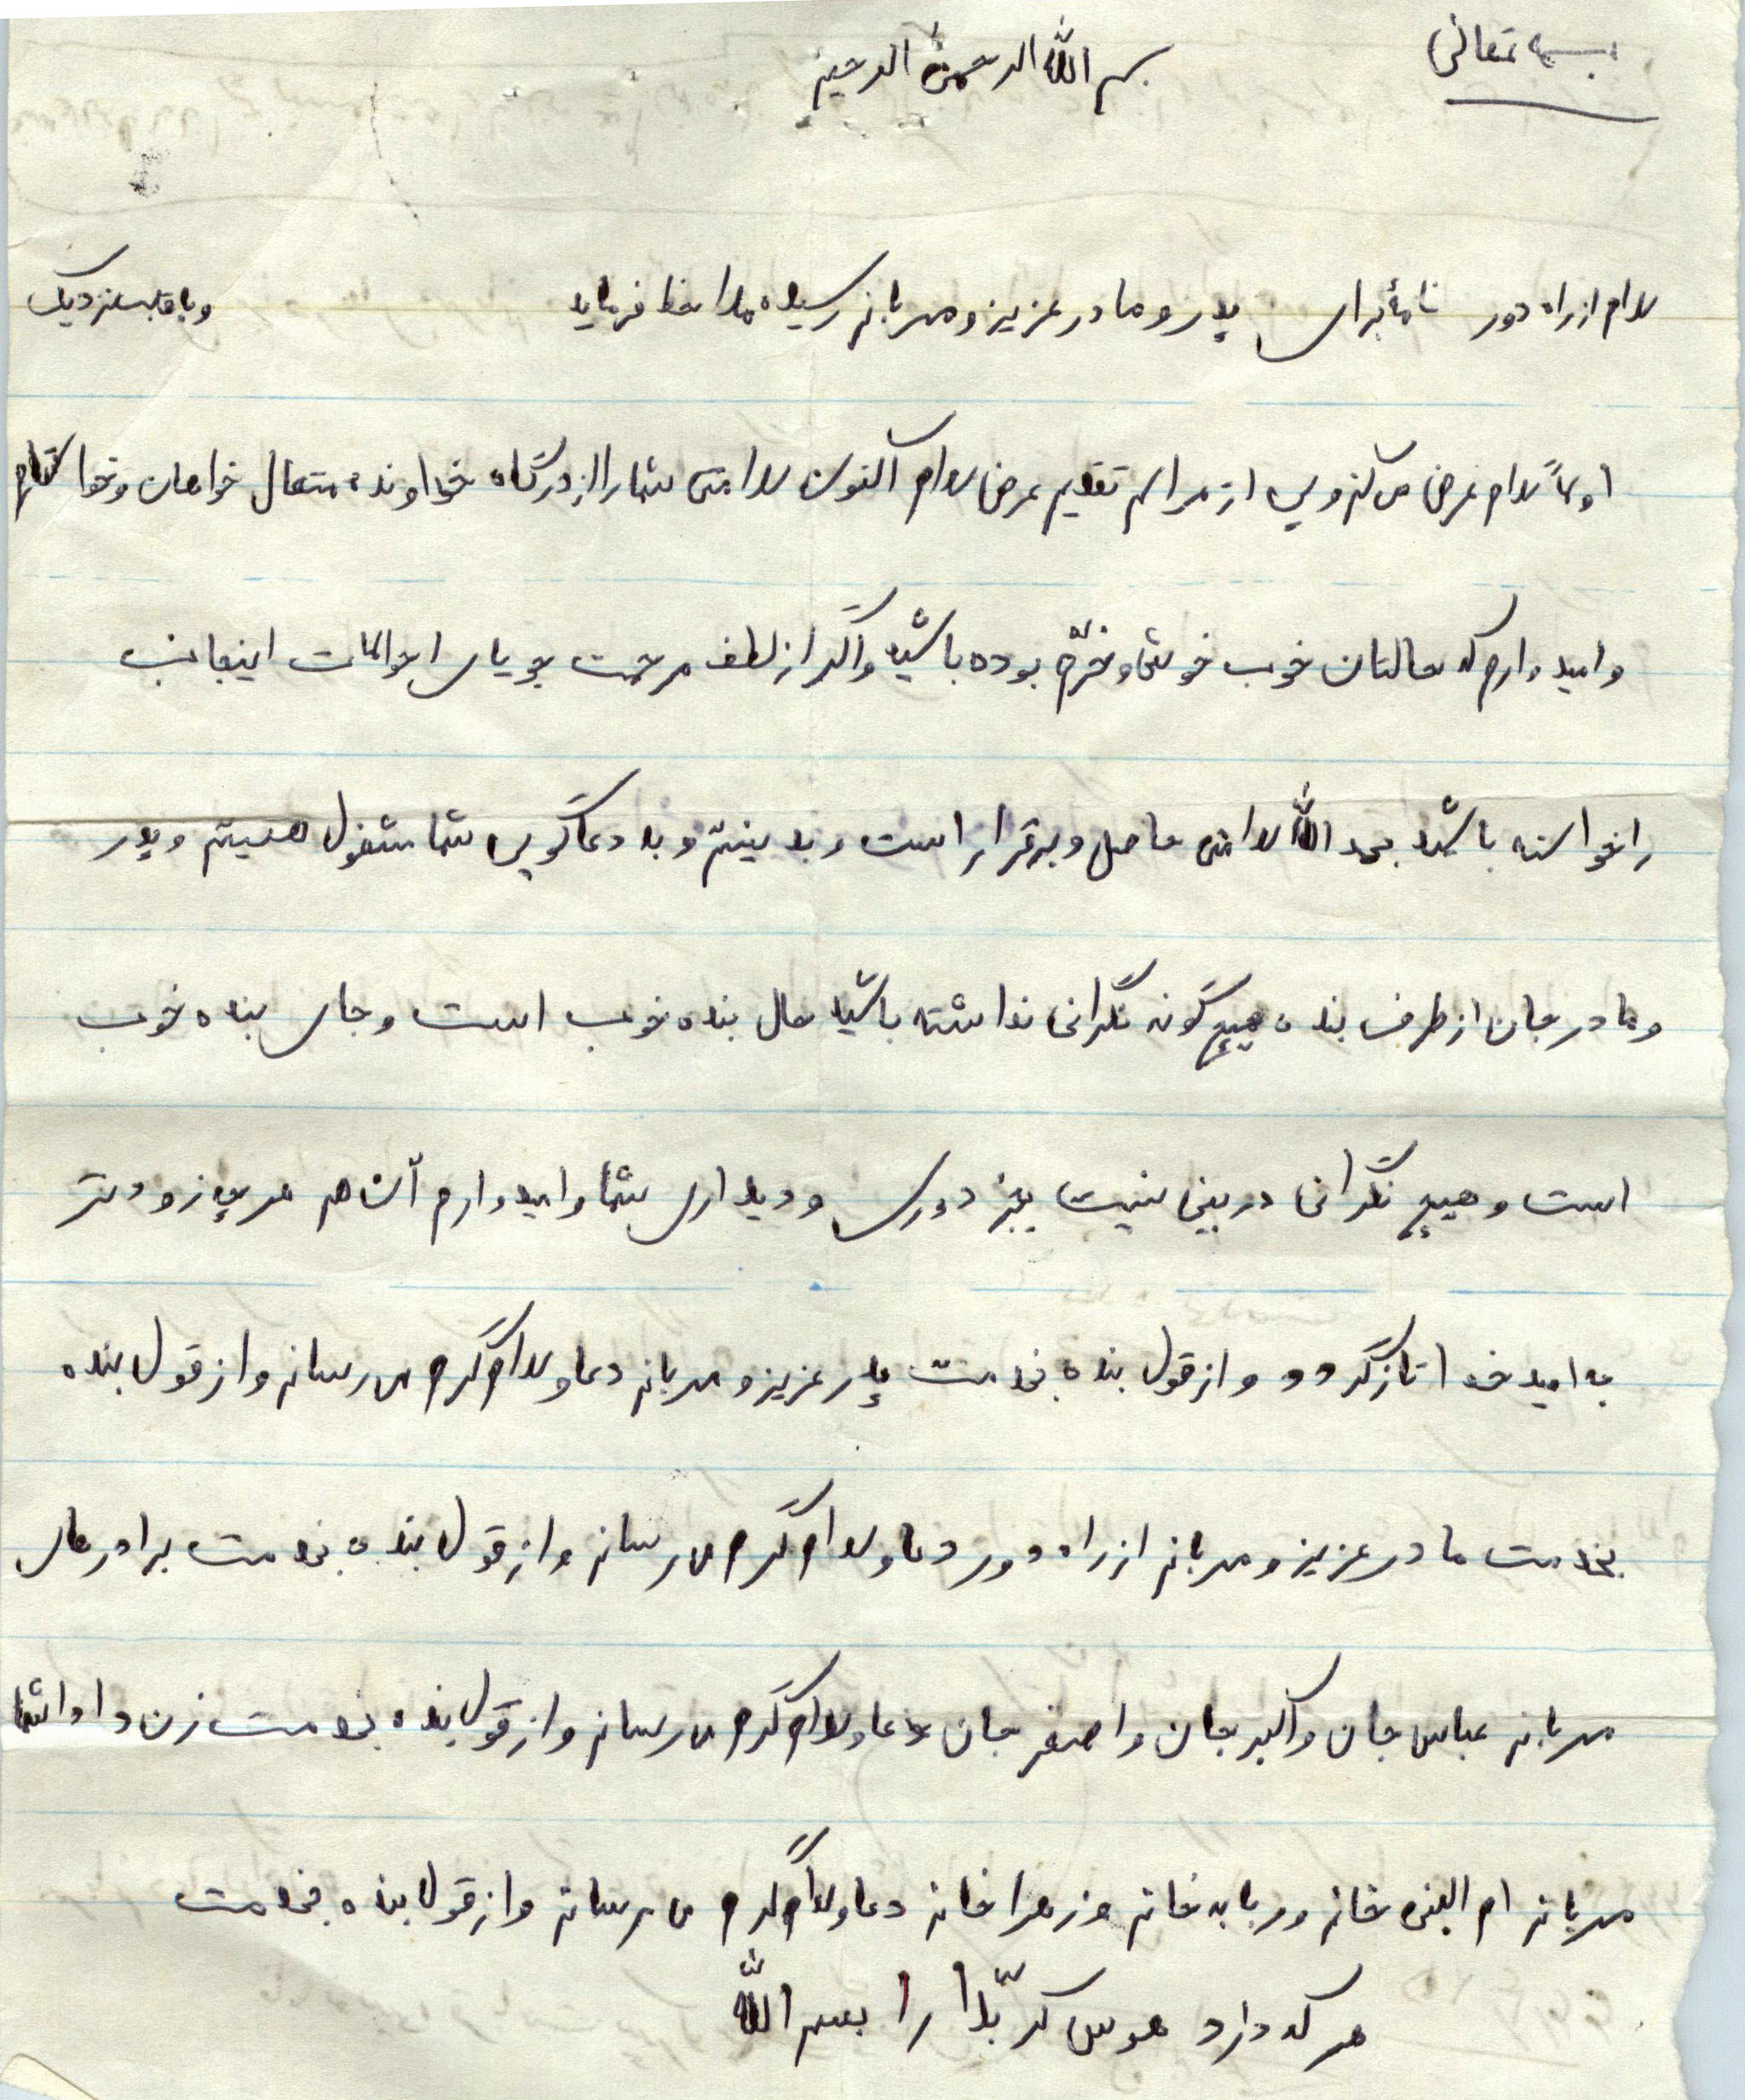 بسمه تعالی
بسم الله الرحمن الرحیم
سلام از راه دور نامهٔ برای پدر و مادر عزیز و مهربانم رسیده ملاحظه فرماید و با قلب نزدیک
اولاً سلام عرض می کنم و پس از مراسم تقدیم عرض سلام اکنون سلامتی شما را از درگاه خداونده متعال خواهان و خواستارم
و امید دارم که حالتان خوب خوش و خرّم بوده باشید و اگر از لطف مرحمت جویای احوالات اینجانب
را خواسته باشید بحمد الله سلامتی حاصل و برقرار است و بد نیستم و به دعاگویی شما مشغول هستیم و پدر
و مادر جان از طرف بنده هیچ گونه نگرانی نداشته باشید حال بنده خوب است و جای بنده خوب
است و هیچ نگرانی در بین نیست بجز دوری و دیداری شما و امیدوارم آن هم هر چه زودتر
به امید خدا تازگردد و از قول بنده بخدمت پدر عزیز و مهربانم دعا و سلام گرم می رسانم و از قول بنده
بخدمت مادر عزیز و مهربانم از راه دور دعا و سلام گرم می رسانم و از قول بنده بخدمت برادرهای
مهربانم عباس جان و اکبر جان و اصغر جان دعا و سلام گرم می رسانم و از قول بنده بخدمت زن داداشها
مهربانم ام البنی خانم و ربابه خانم و زهرا خانم دعا و سلام گرم می رسانم و از قول بنده بخدمت
هر که دارد هوس کربّلا را بسم الله